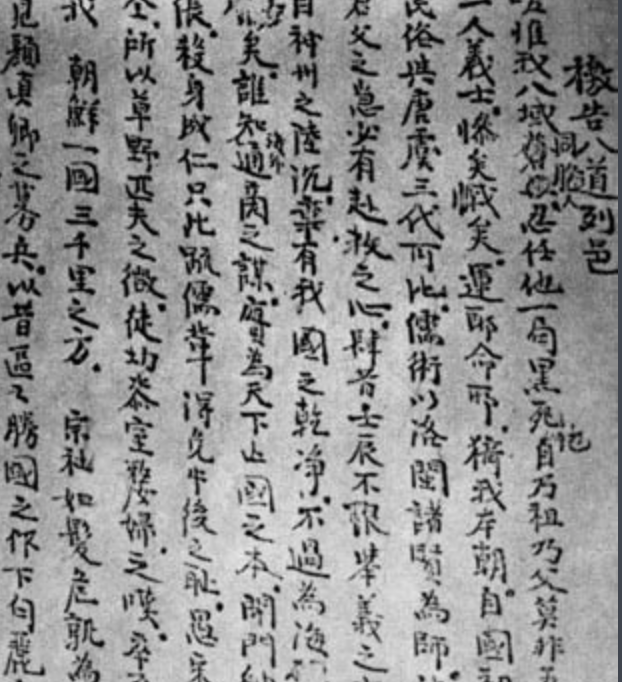 檄告八道列邑
惟我八域同胞忍任他一局黑死地自乃祖乃父莫非五
一人義士慘矣慽矣運耶命耶猗我本朝自國初
民俗與唐虞三代可比儒術以洛閩諸賢為師
君父之急必有赴救之心肆昔壬辰不限擧義之
自神州之陸沉有我國之乾淨不過為海
矣誰知海外通商之謀實為天下亡國之本開門納
倀殺身成仁只此疏儒輩得免牛後之恥愚宋
全所以草野匹夫之微徒切漆室嫠婦之嘆
我 朝鮮一國三千里之方 宗社如髮危孰為
見顔眞卿之募兵以昔區々勝國之依下句麗